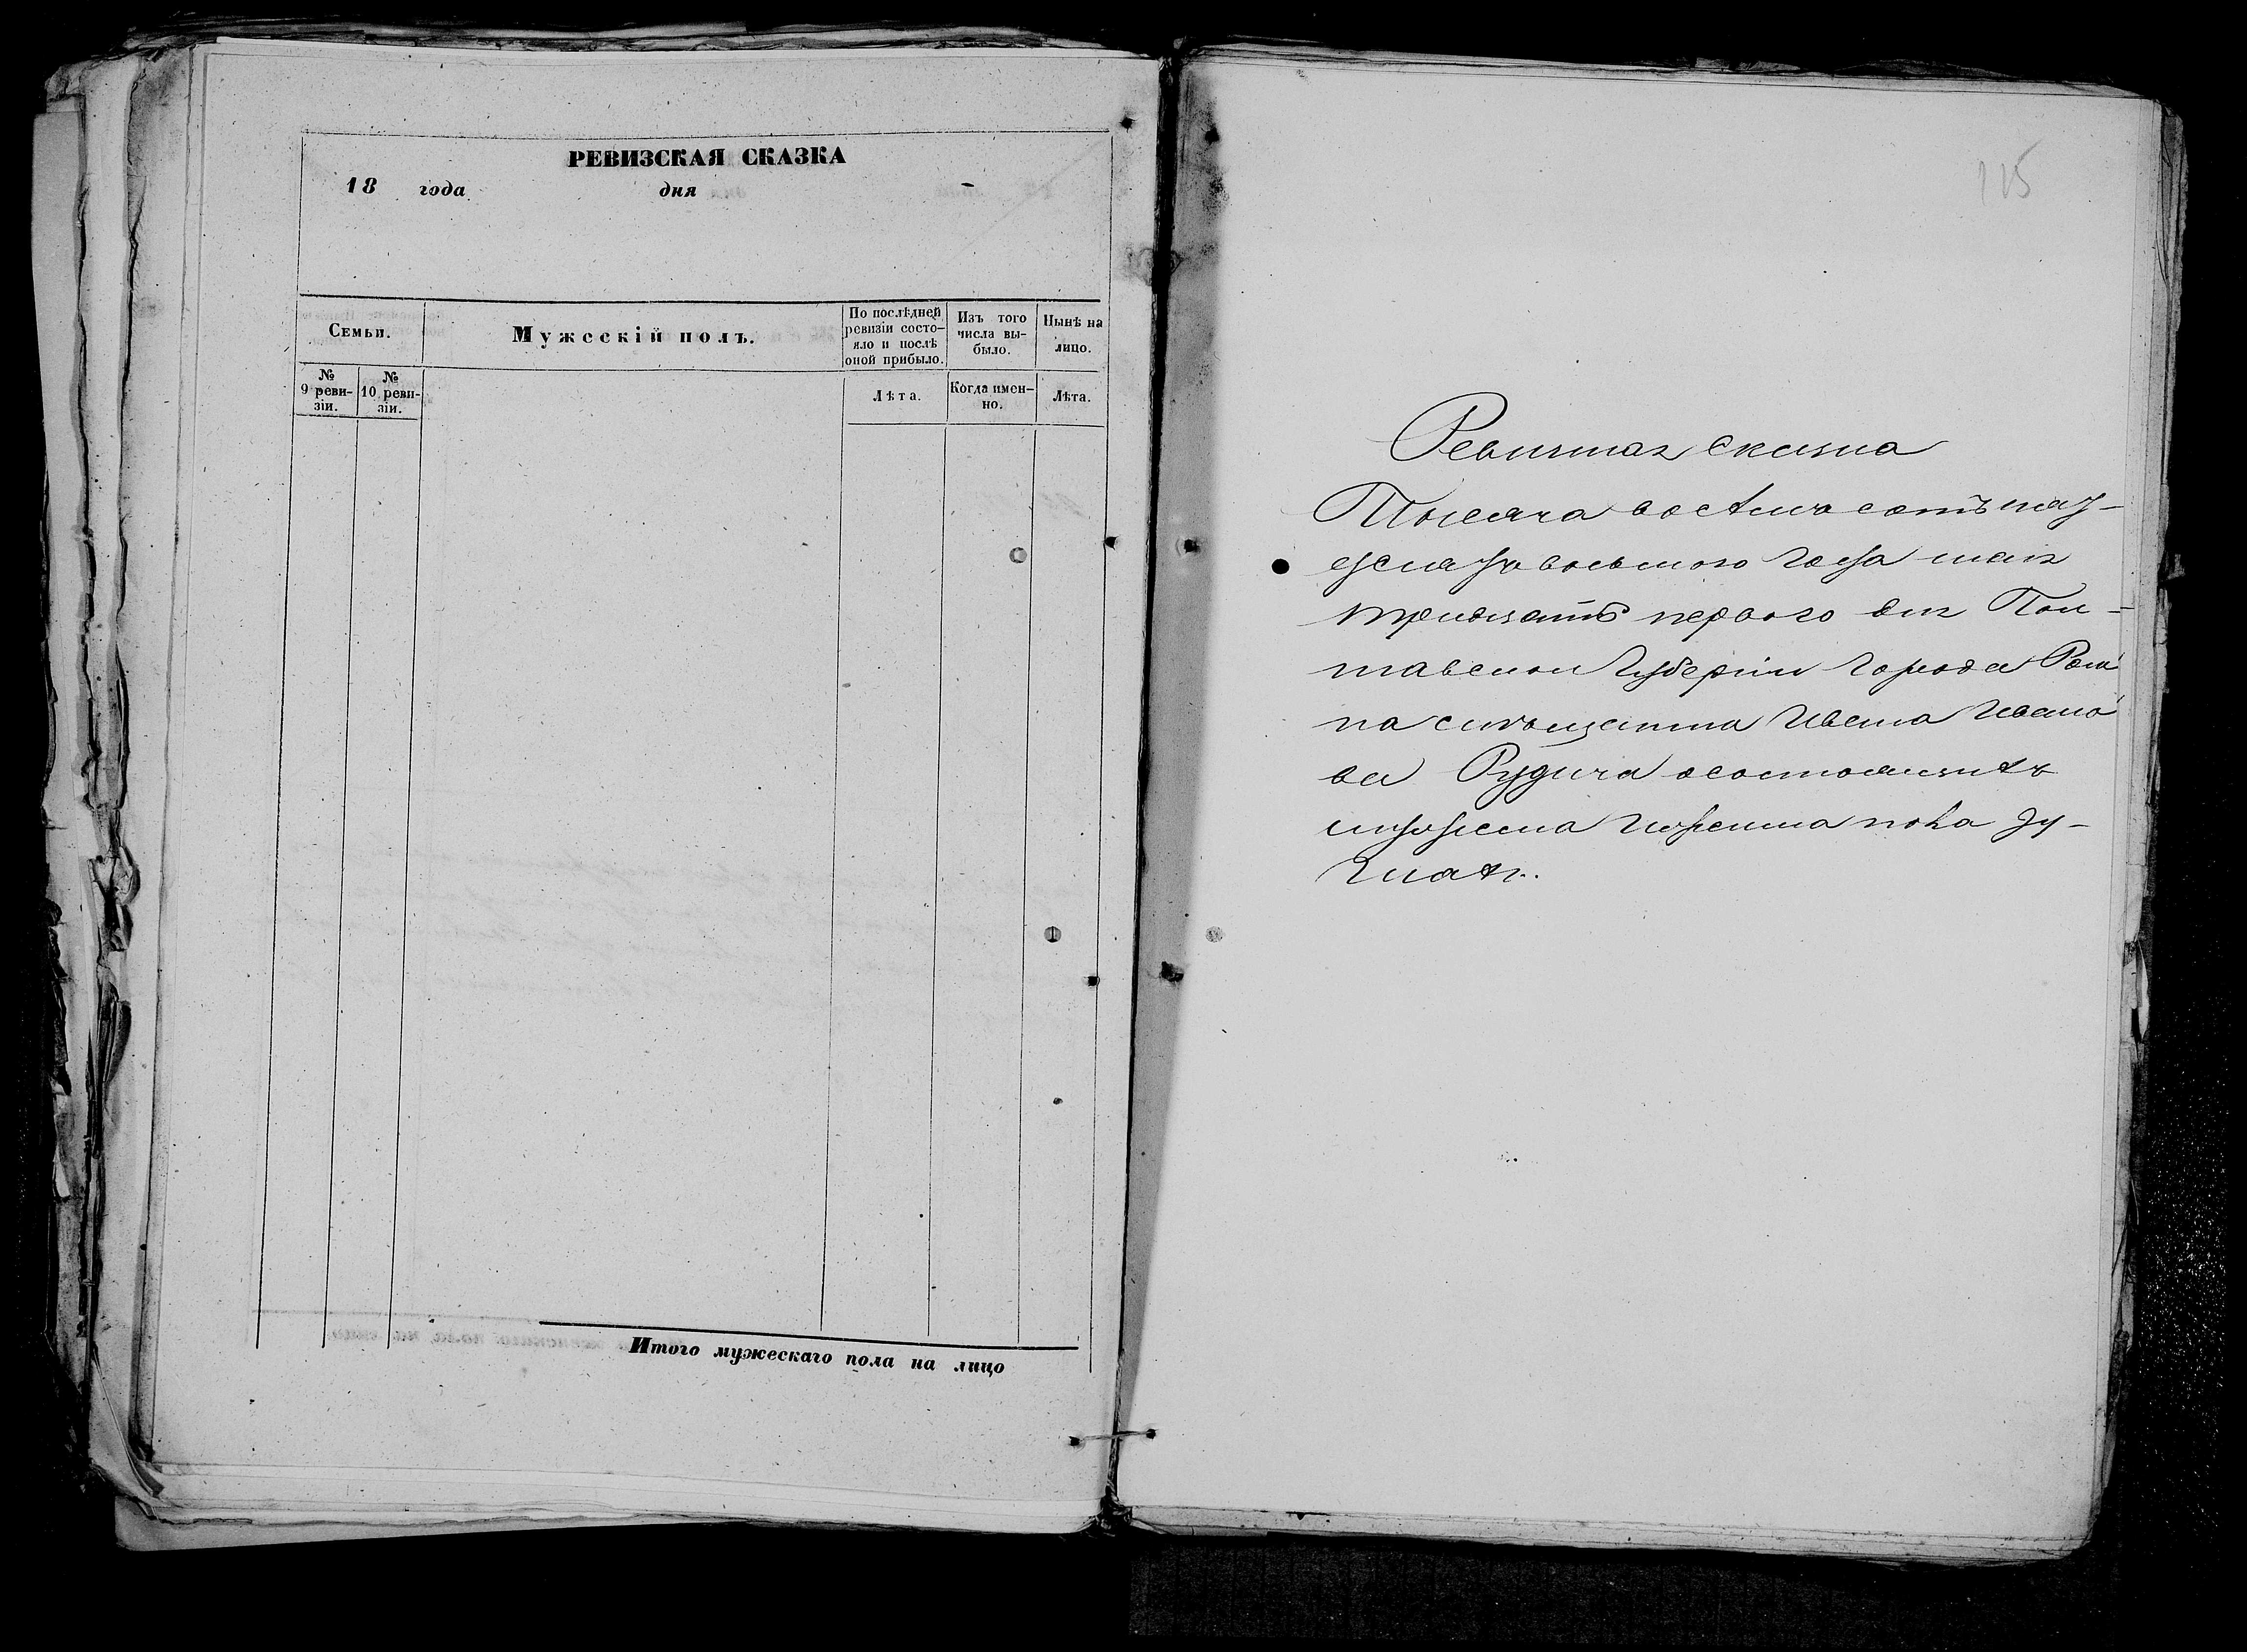 РЕВИЗСКАЯ СКАЗКА
18 года дня
Семьи.
Мужескій полъ.
По послѣдней ревизіи состо-
яло и послѣ
оной прибыло.
Изъ того
числа вы-
было.
Нынѣ на
лицо.
№
9 реви-
зіи.
№
10 реви-
зіи.
Лѣта.
Когда имен-
но.
Лѣта.
Итого мужескаго пола на лицо
115
Ревизская сказка
Тысяча восемь сотъ пять-
десятъ восьмого года мая
тридцать первого дня Пол-
тавской Губерніи города Ром
на мѣщанина Ивана Ивано
ва Рудича о состоящихъ
мужеска и женска пола ду-
шахъ.